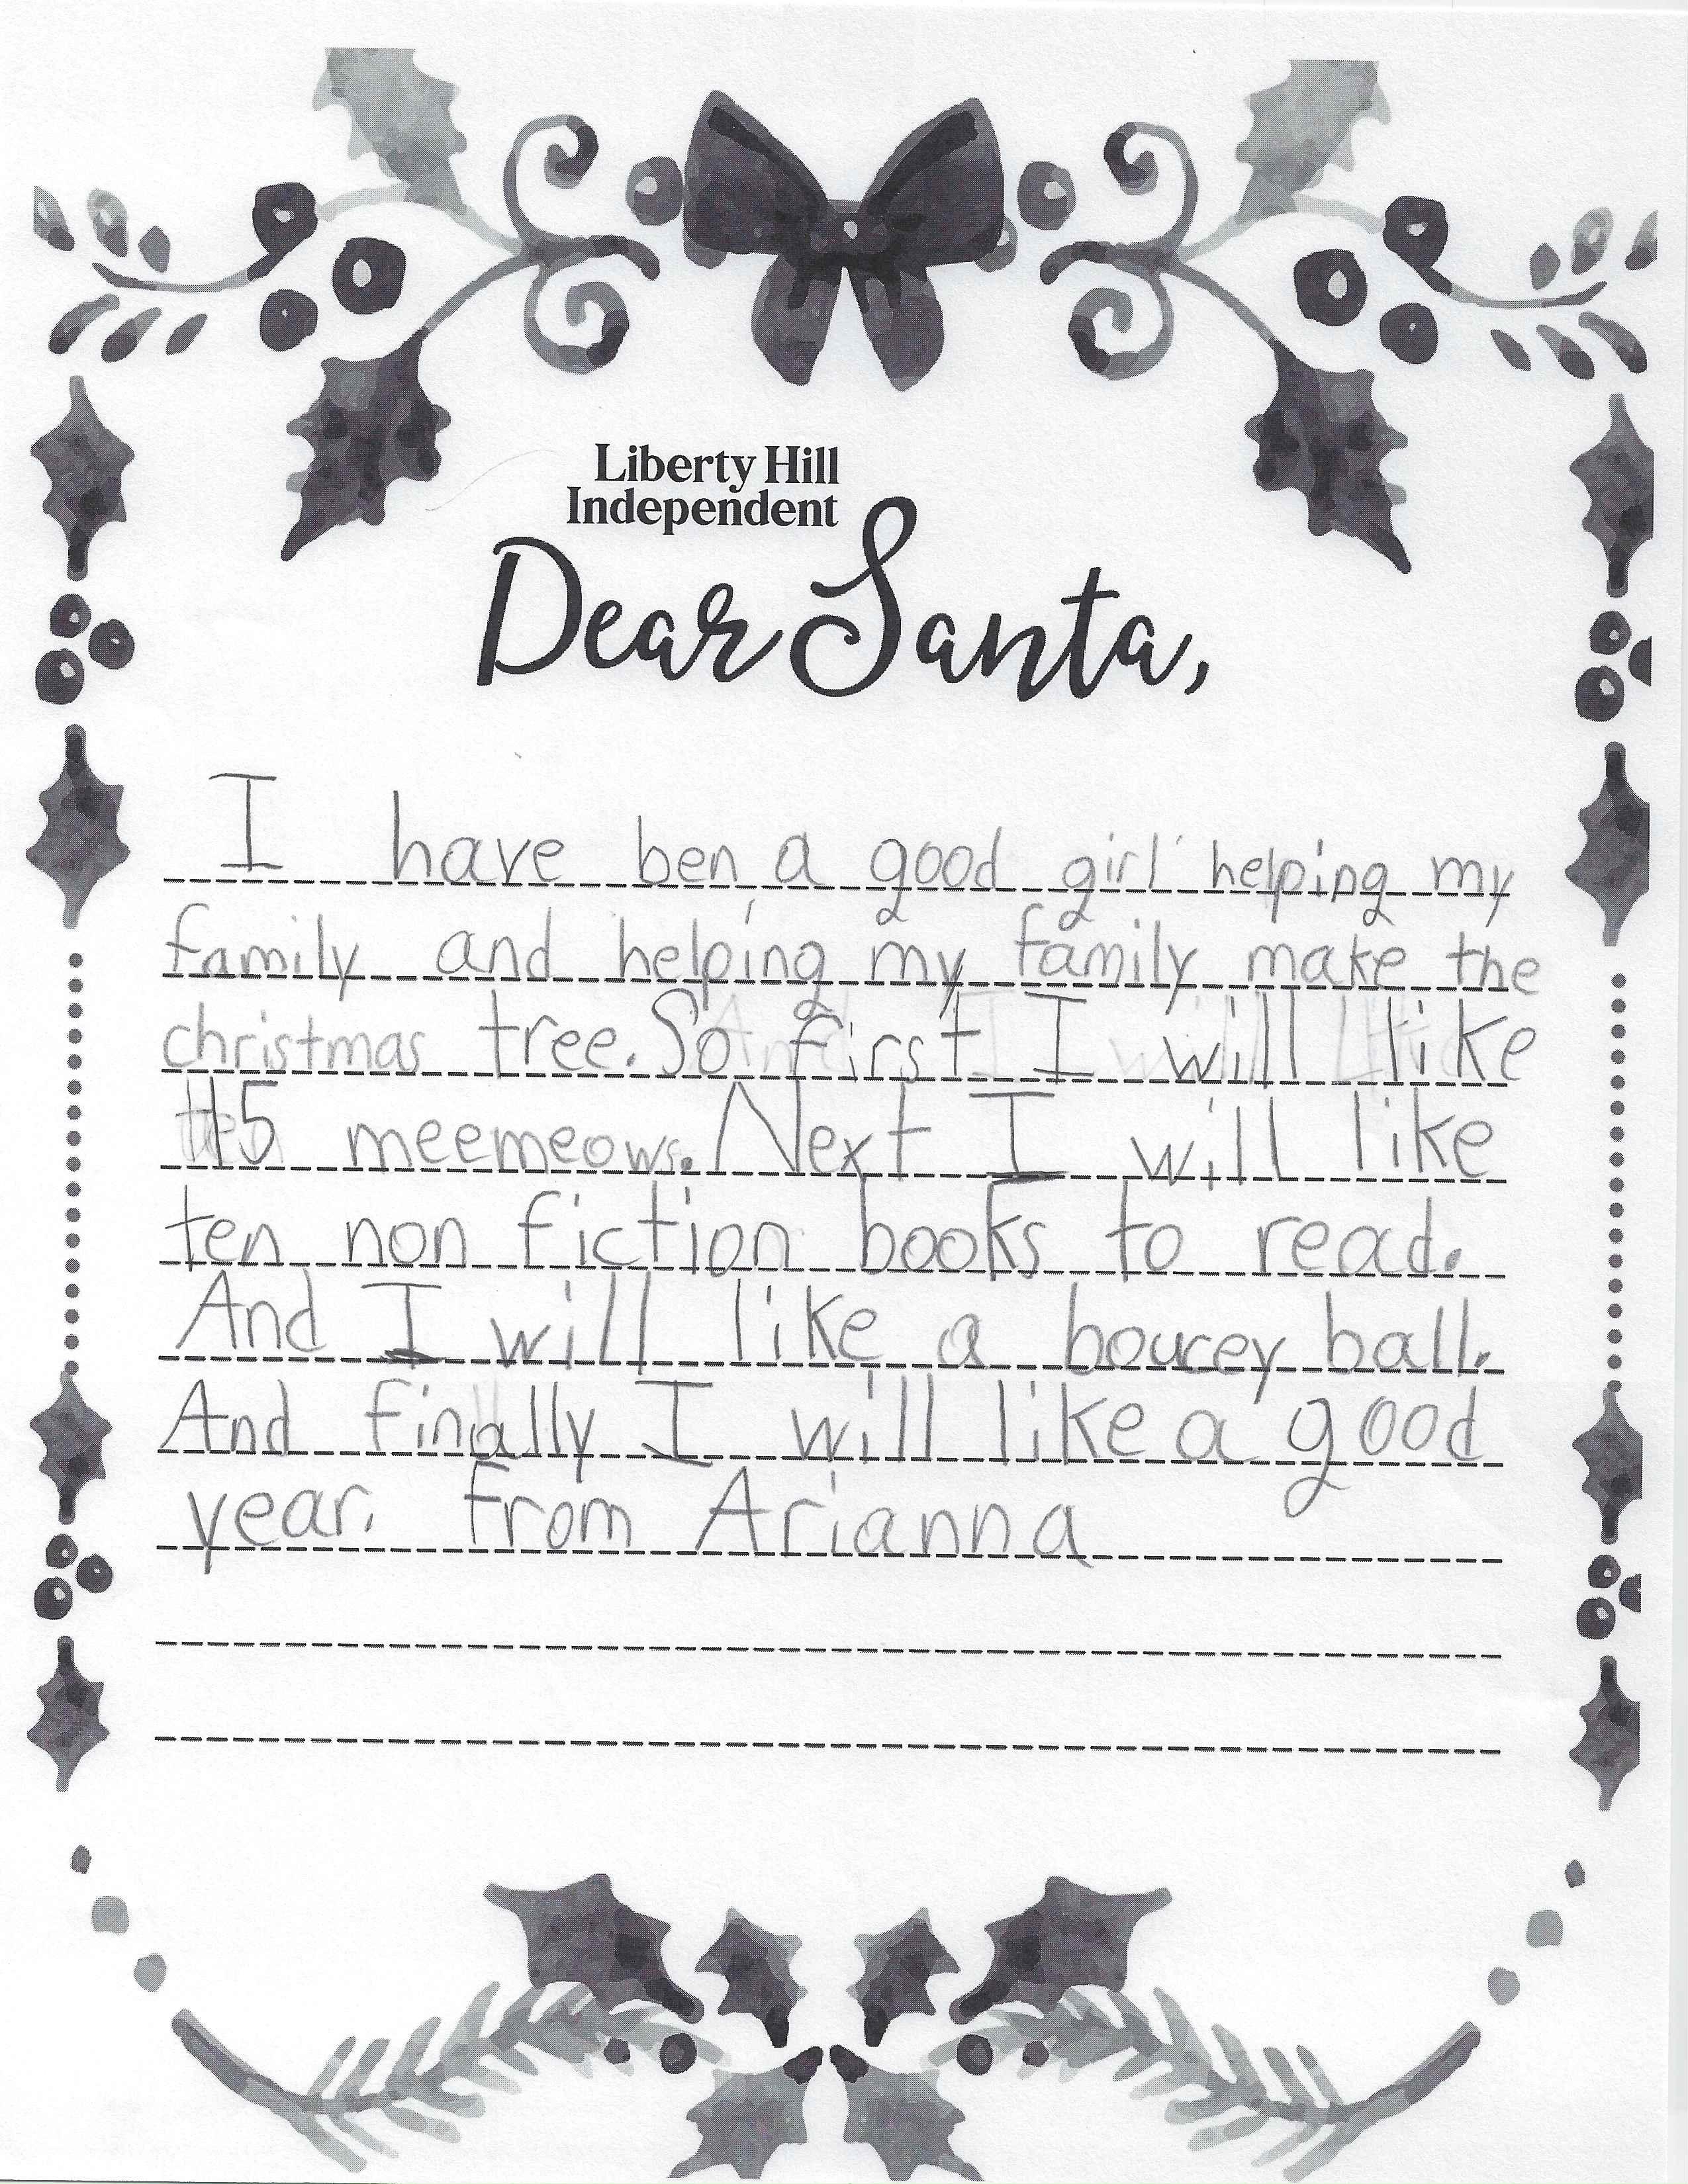 Liberty Hill
Independent
Dear Santa,
I have ben a good girl helping my
family and helping my family make the
christmas tree. So first I will like
15 meemeows. Next I will like
ten non fiction books to read.
And I will like a boucey ball.
And finally I will like a good
year. From Arianna